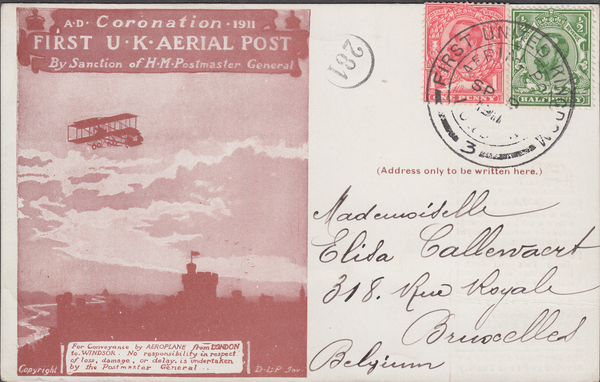 A·D· Coronation · 1911
FIRST U·K·AERIAL POST
By Sanction of H·M·Postmaster General
281
FIRST UNITED KINGDOM
AERIAL
SP
3
ONE PENNY 1
½ HALFPENNY ½
(Address only to be written here.)
Mademoiselle
Elisa Callewaert
318. Rue Royale
Bruxelles
Belgium
For Conveyance by AEROPLANE from LONDON
to WINDSOR. No responsibility in respect
of loss, damage, or delay, is undertaken
by the Postmaster General
Copyright
D·L·P Inv